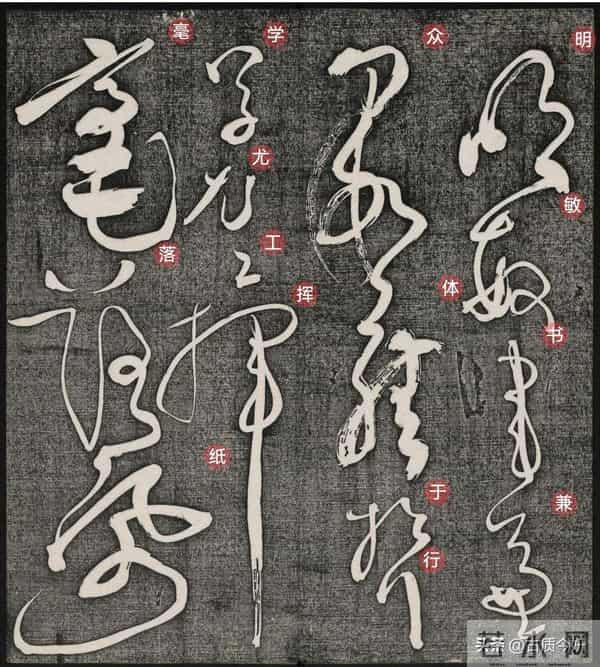 明敏书兼
众体于行
学尤工挥
毫落纸
头条 @古质今妍